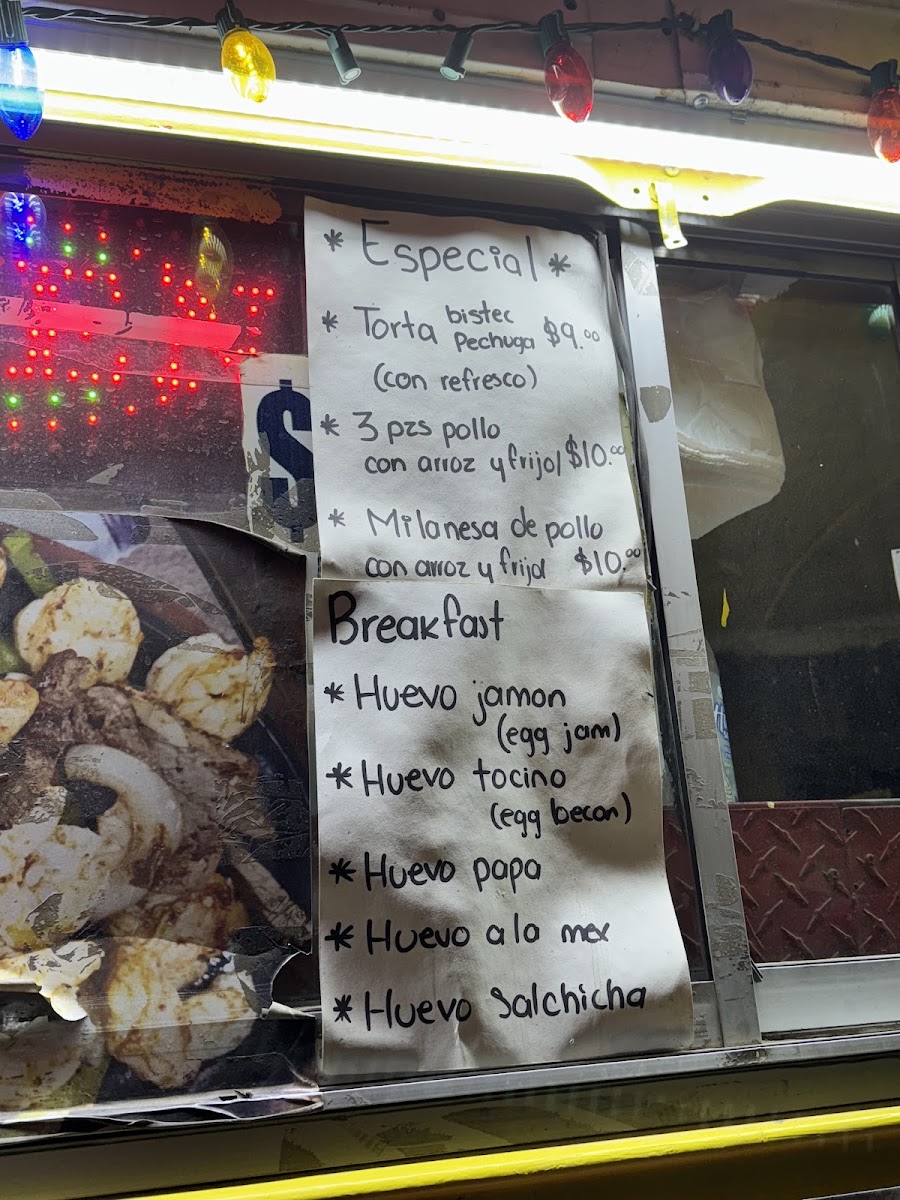 * Especial *
* Torta bistec Pechuga $9.00
(con refresco)
* 3 pzs pollo
con arroz y frijol $10.00
* Milanesa de pollo
con arroz y frijol $10.00
Breakfast
* Huevo jamon
(egg jam)
* Huevo tocino
(egg becon)
* Huevo papa
* Huevo a la mex
* Huevo Salchicha
$